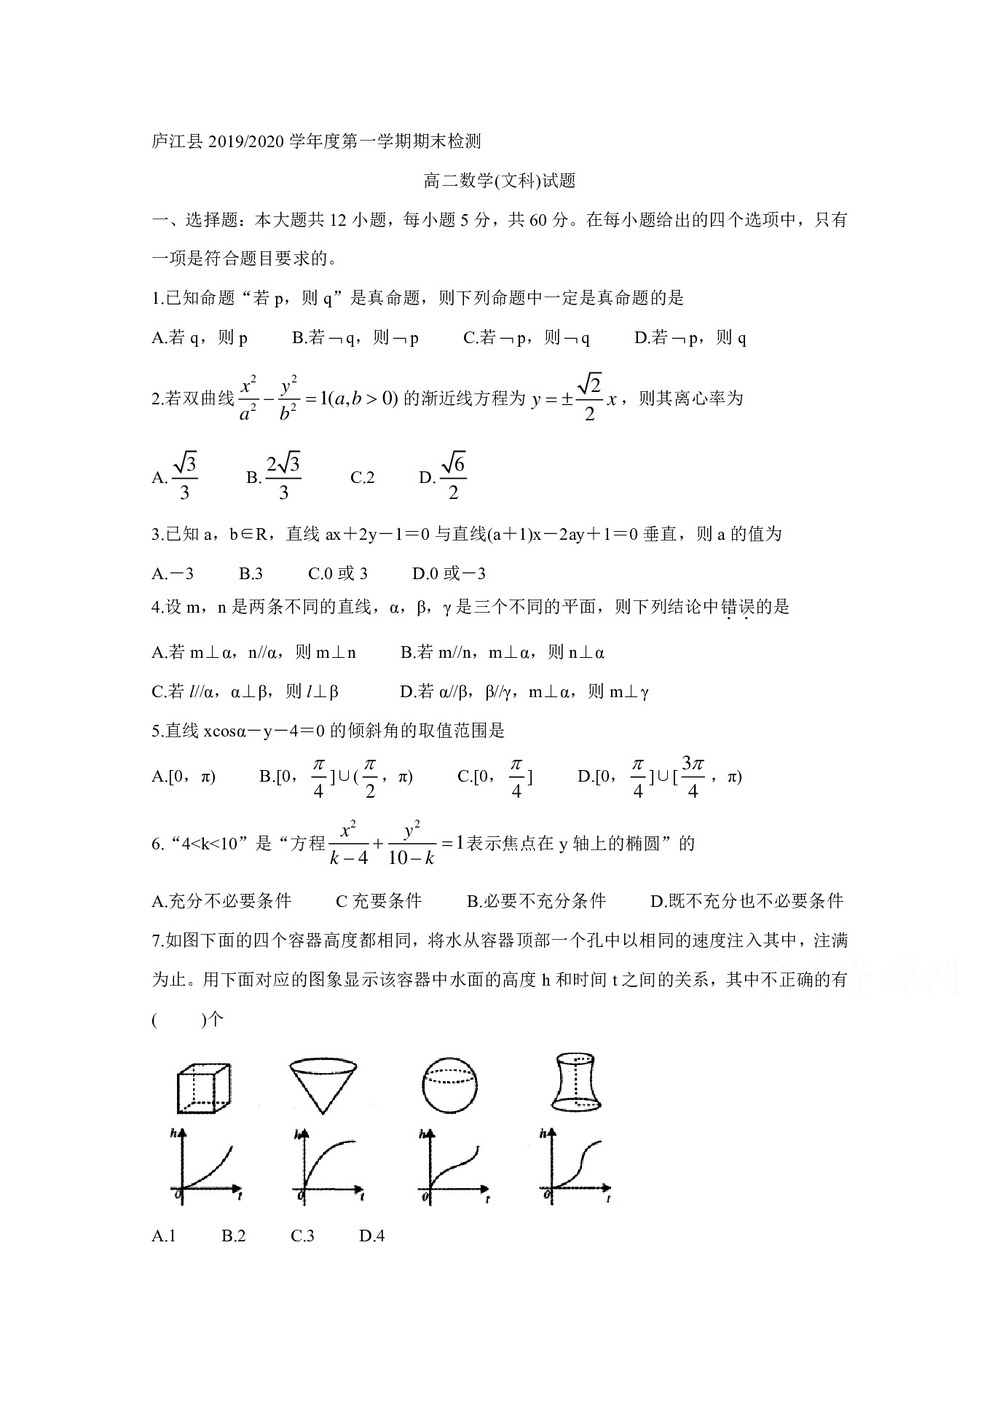 庐江县 2019/2020 学年度第一学期期末检测
高二数学(文科)试题
一、选择题：本大题共 12 小题，每小题 5 分，共 60 分。在每小题给出的四个选项中，只有
一项是符合题目要求的。
1.已知命题“若 p，则 q”是真命题，则下列命题中一定是真命题的是
A.若 q，则 p B.若﹁q，则﹁p C.若﹁p，则﹁q D.若﹁p，则 q
2.若双曲线 x²/a² − y²/b² = 1(a,b > 0) 的渐近线方程为 y = ± √2/2 x，则其离心率为
A. √3/3 B. 2√3/3 C.2 D. √6/2
3.已知 a，b∈R，直线 ax＋2y－1＝0 与直线(a＋1)x－2ay＋1＝0 垂直，则 a 的值为
A.－3 B.3 C.0 或 3 D.0 或－3
4.设 m，n 是两条不同的直线，α，β，γ 是三个不同的平面，则下列结论中错误的是
A.若 m⊥α，n//α，则 m⊥n B.若 m//n，m⊥α，则 n⊥α
C.若 l//α，α⊥β，则 l⊥β D.若 α//β，β//γ，m⊥α，则 m⊥γ
5.直线 xcosα－y－4＝0 的倾斜角的取值范围是
A.[0，π) B.[0，π/4]∪(π/2，π) C.[0，π/4] D.[0，π/4]∪[3π/4，π)
6.“4<k<10”是“方程 x²/(k − 4) + y²/(10 − k) = 1 表示焦点在 y 轴上的椭圆”的
A.充分不必要条件 C 充要条件 B.必要不充分条件 D.既不充分也不必要条件
7.如图下面的四个容器高度都相同，将水从容器顶部一个孔中以相同的速度注入其中，注满
为止。用下面对应的图象显示该容器中水面的高度 h 和时间 t 之间的关系，其中不正确的有
( )个
h h h h
0 t 0 t 0 t 0 t
A.1 B.2 C.3 D.4